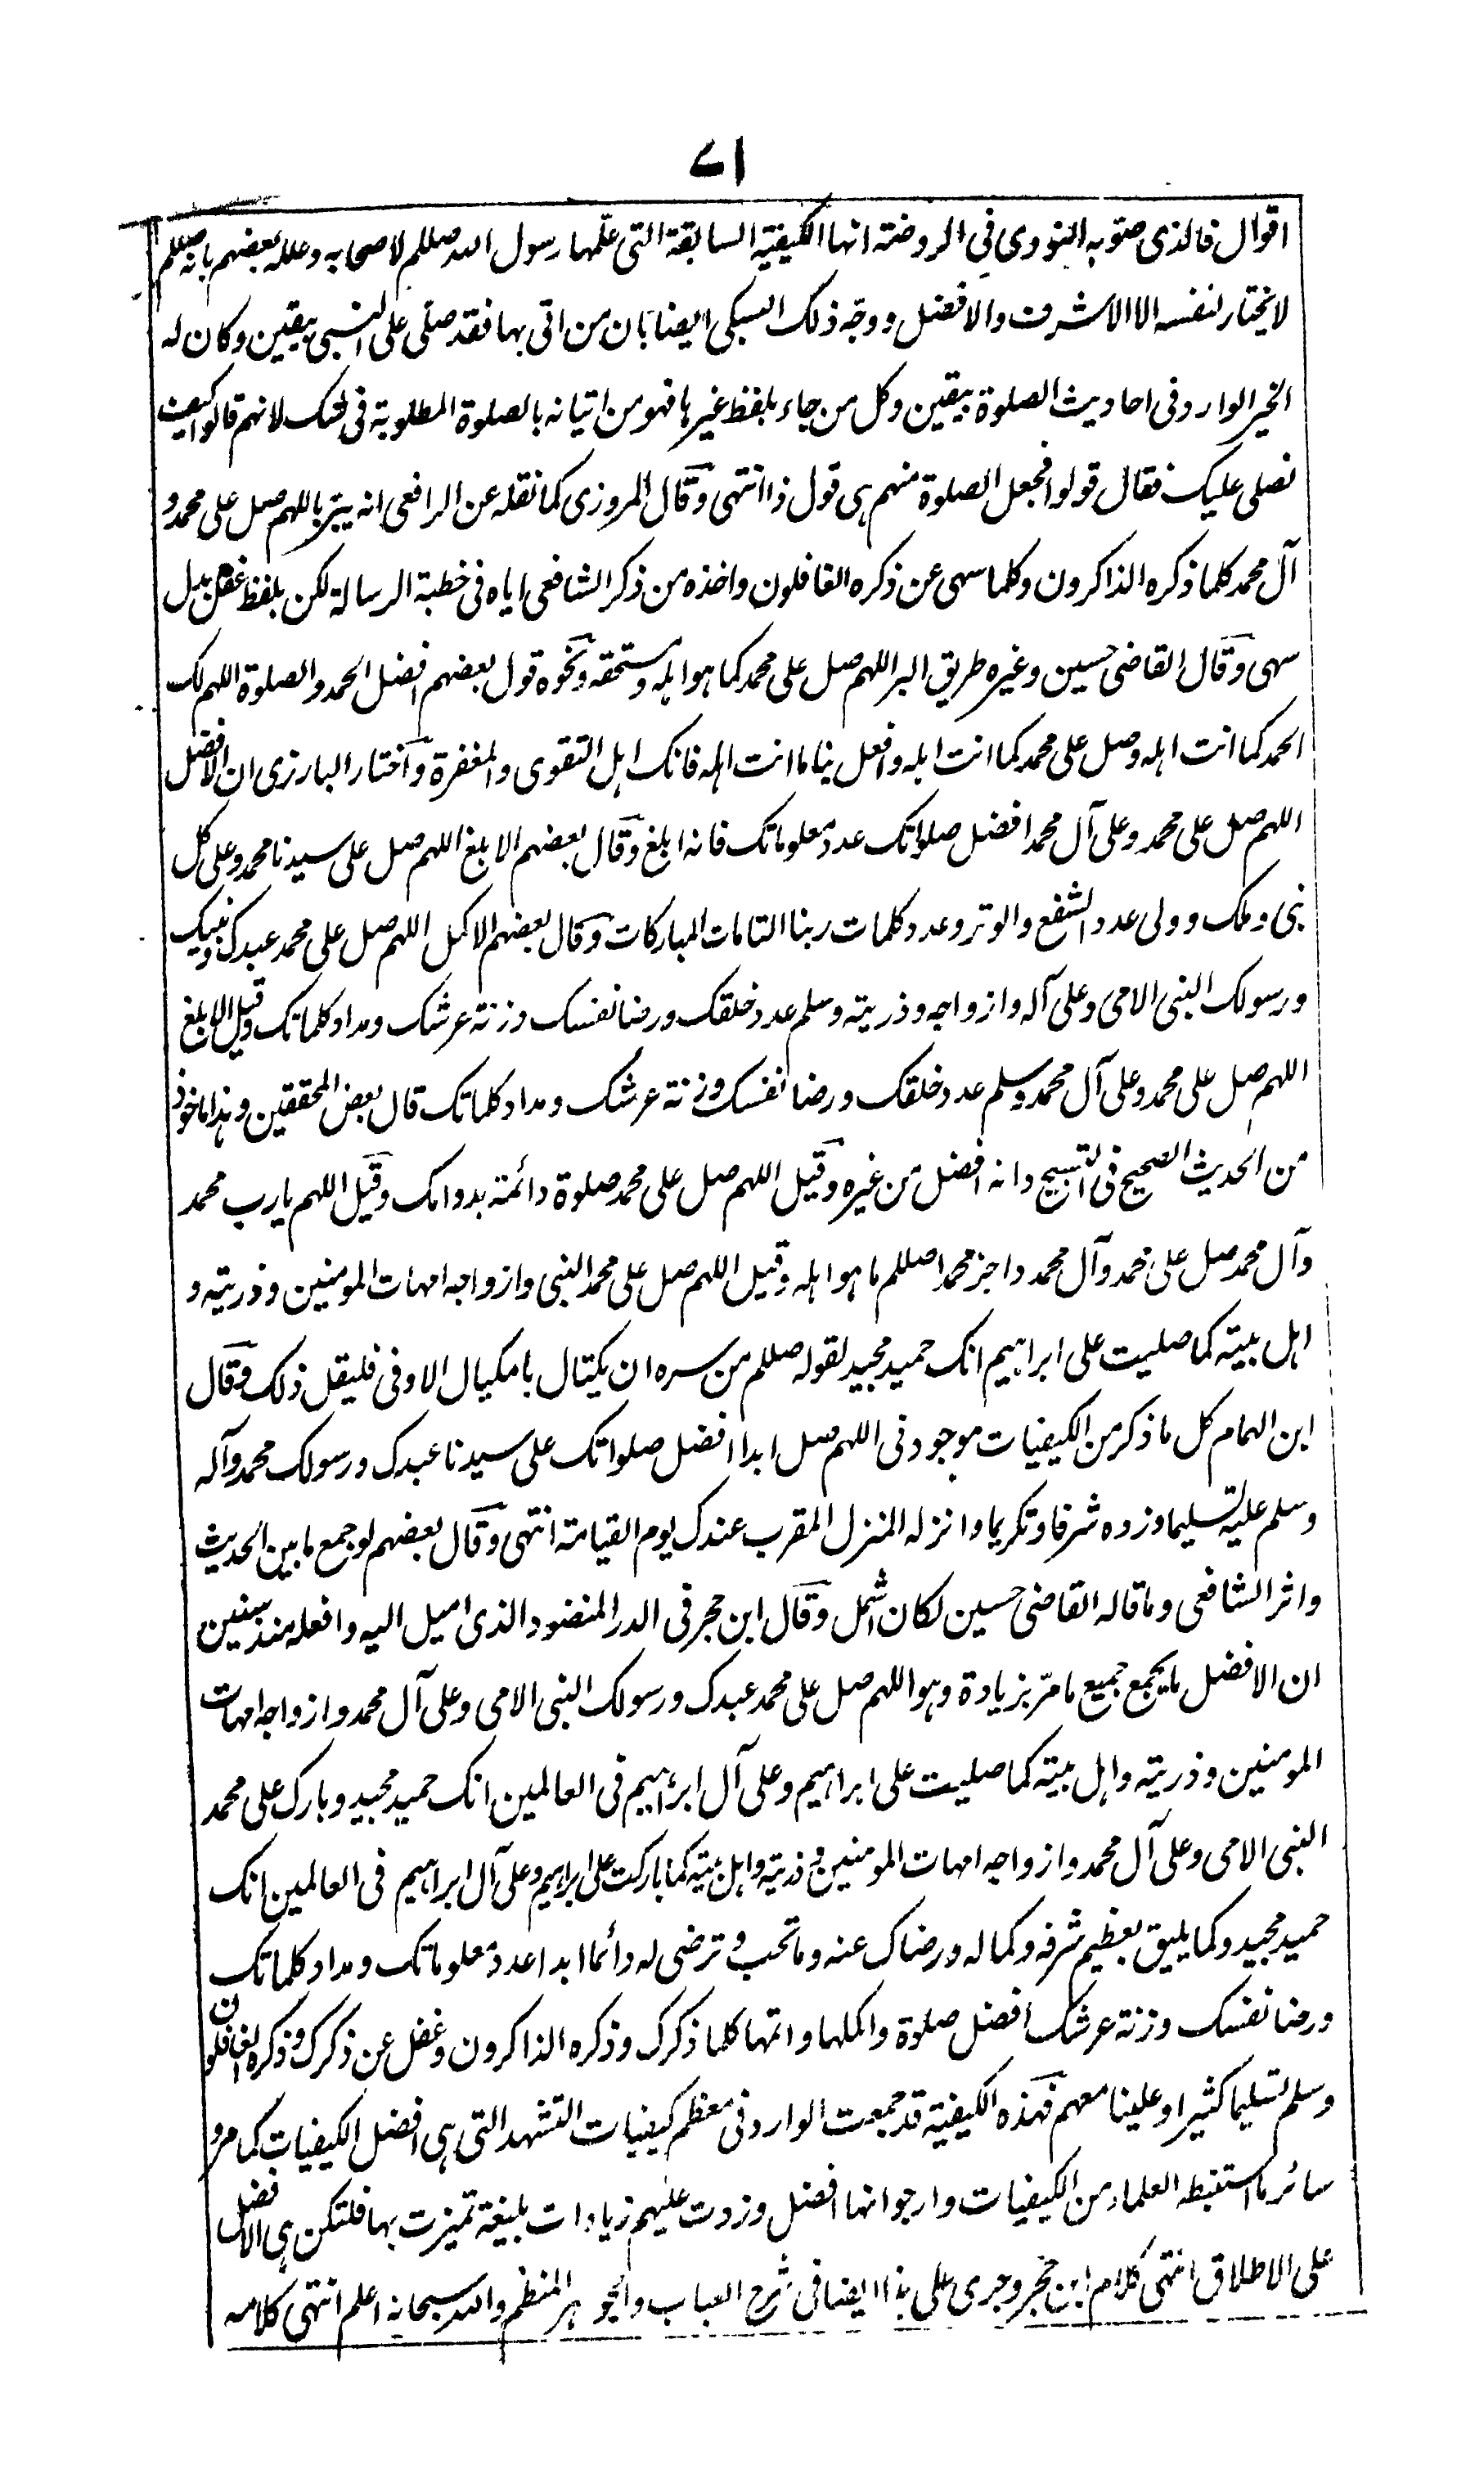 ۷۱
اقوال فالذی صوّبه النووی فی الروضة انها الکیفیة السابقة التی علّمها رسول الله صللم لاصحابه وعلله بعضهم بانه صللم
لا یختار لنفسه الا الاشرف والافضل ووجّه ذلک السبکی ایضا بان من اتی بها فقد صلّی علی النبی بیقین وکان له
الخیر الوارد فی احادیث الصلوة بیقین وکل من جاء بلفظ غیرها فهو من اتیانه بالصلوة المطلوبة فی شک لانهم قالوا کیف
نصلی علیک فقال قولوا فجعل الصلوة منهم هی قول ذا انتهی وقال المروزی کما نقله عن الرافعی انه یبرّ باللهم صل علی محمد و
آل محمد کلما ذکره الذاکرون وکلما سهی عن ذکره الغافلون واخذه من ذکر الشافعی ایاه فی خطبة الرسالة لکن بلفظ غفل بدل
سهی وقال القاضی حسین وغیره طریق البر اللهم صل علی محمد کما هو اهله ومستحقه ونحوه قول بعضهم افضل الحمد والصلوة اللهم لک
الحمد کما انت اهله وصل علی محمد کما انت اهله وافعل بنا ما انت اهله فانک اهل التقوی والمغفرة واختار البارزی ان الافضل
اللهم صل علی محمد وعلی آل محمد افضل صلواتک عدد معلوماتک فانه ابلغ وقال بعضهم الابلغ اللهم صل علی سیدنا محمد وعلی کل
نبی وملک وولی عدد الشفع والوتر وعدد کلمات ربنا التامات المبارکات وقال بعضهم الاکمل اللهم صل علی محمد عبدک ونبیک
ورسولک النبی الامی وعلی آله وازواجه وذریته وسلم عدد خلقک ورضا نفسک وزنة عرشک ومداد کلماتک وقیل الابلغ
اللهم صل علی محمد وعلی آل محمد وسلم عدد خلقک ورضا نفسک وزنة عرشک ومداد کلماتک قال بعض المحققین وهذا ماخوذ
من الحدیث الصحیح فی التسبیح وانه افضل من غیره وقیل اللهم صل علی محمد صلوة دائمة بدوامک وقیل اللهم یارب محمد
وآل محمد صل علی محمد وآل محمد واجز محمدا صللم ما هو اهله وقیل اللهم صل علی محمد النبی وازواجه امهات المومنین وذریته و
اهل بیته کما صلیت علی ابراهیم انک حمید مجید لقوله صللم من سره ان یکتال بامکیال الاوفی فلیقل ذلک وقال
ابن الهمام کل ما ذکر من الکیفیات موجود فی اللهم صل ابدا افضل صلواتک علی سیدنا عبدک ورسولک محمد وآله
وسلم علیه تسلیما وزده شرفا وتکریما وانزله المنزل المقرب عندک یوم القیامة انتهی وقال بعضهم لو جمع ما بین الحدیث
واثر الشافعی وما قاله القاضی حسین لکان اشمل وقال ابن حجر فی الدر المنضود الذی امیل الیه وافعله منذ سنین
ان الافضل ما یجمع جمیع ما مرّ بزیادة وهو اللهم صل علی محمد عبدک ورسولک النبی الامی وعلی آل محمد وازواجه امهات
المومنین وذریته واهل بیته کما صلیت علی ابراهیم وعلی آل ابراهیم فی العالمین انک حمید مجید وبارک علی محمد
النبی الامی وعلی آل محمد وازواجه امهات المومنین وذریته واهل بیته کما بارکت علی ابراهیم وعلی آل ابراهیم فی العالمین انک
حمید مجید وکما یلیق بعظیم شرفه وکماله ورضاک عنه وما تحب وترضی له دائما ابدا عدد معلوماتک ومداد کلماتک
ورضا نفسک وزنة عرشک افضل صلوة واکملها واتمها کلما ذکرک وذکره الذاکرون وغفل عن ذکرک وذکره الغافلون
وسلم تسلیما کثیرا وعلینا معهم فهذه الکیفیة قد جمعت الوارد فی معظم کیفیات التشهد التی هی افضل الکیفیات کما مر و
سائر ما استنبطه العلماء من الکیفیات وارجو انها افضل وزدت علیهم زیادات بلیغة تمیزت بها فلتکن هی الافضل
علی الاطلاق انتهی کلام ابن حجر وجری علی هذا ایضا فی شرح العباب والجوهر المنظم والله سبحانه اعلم انتهی کلامه